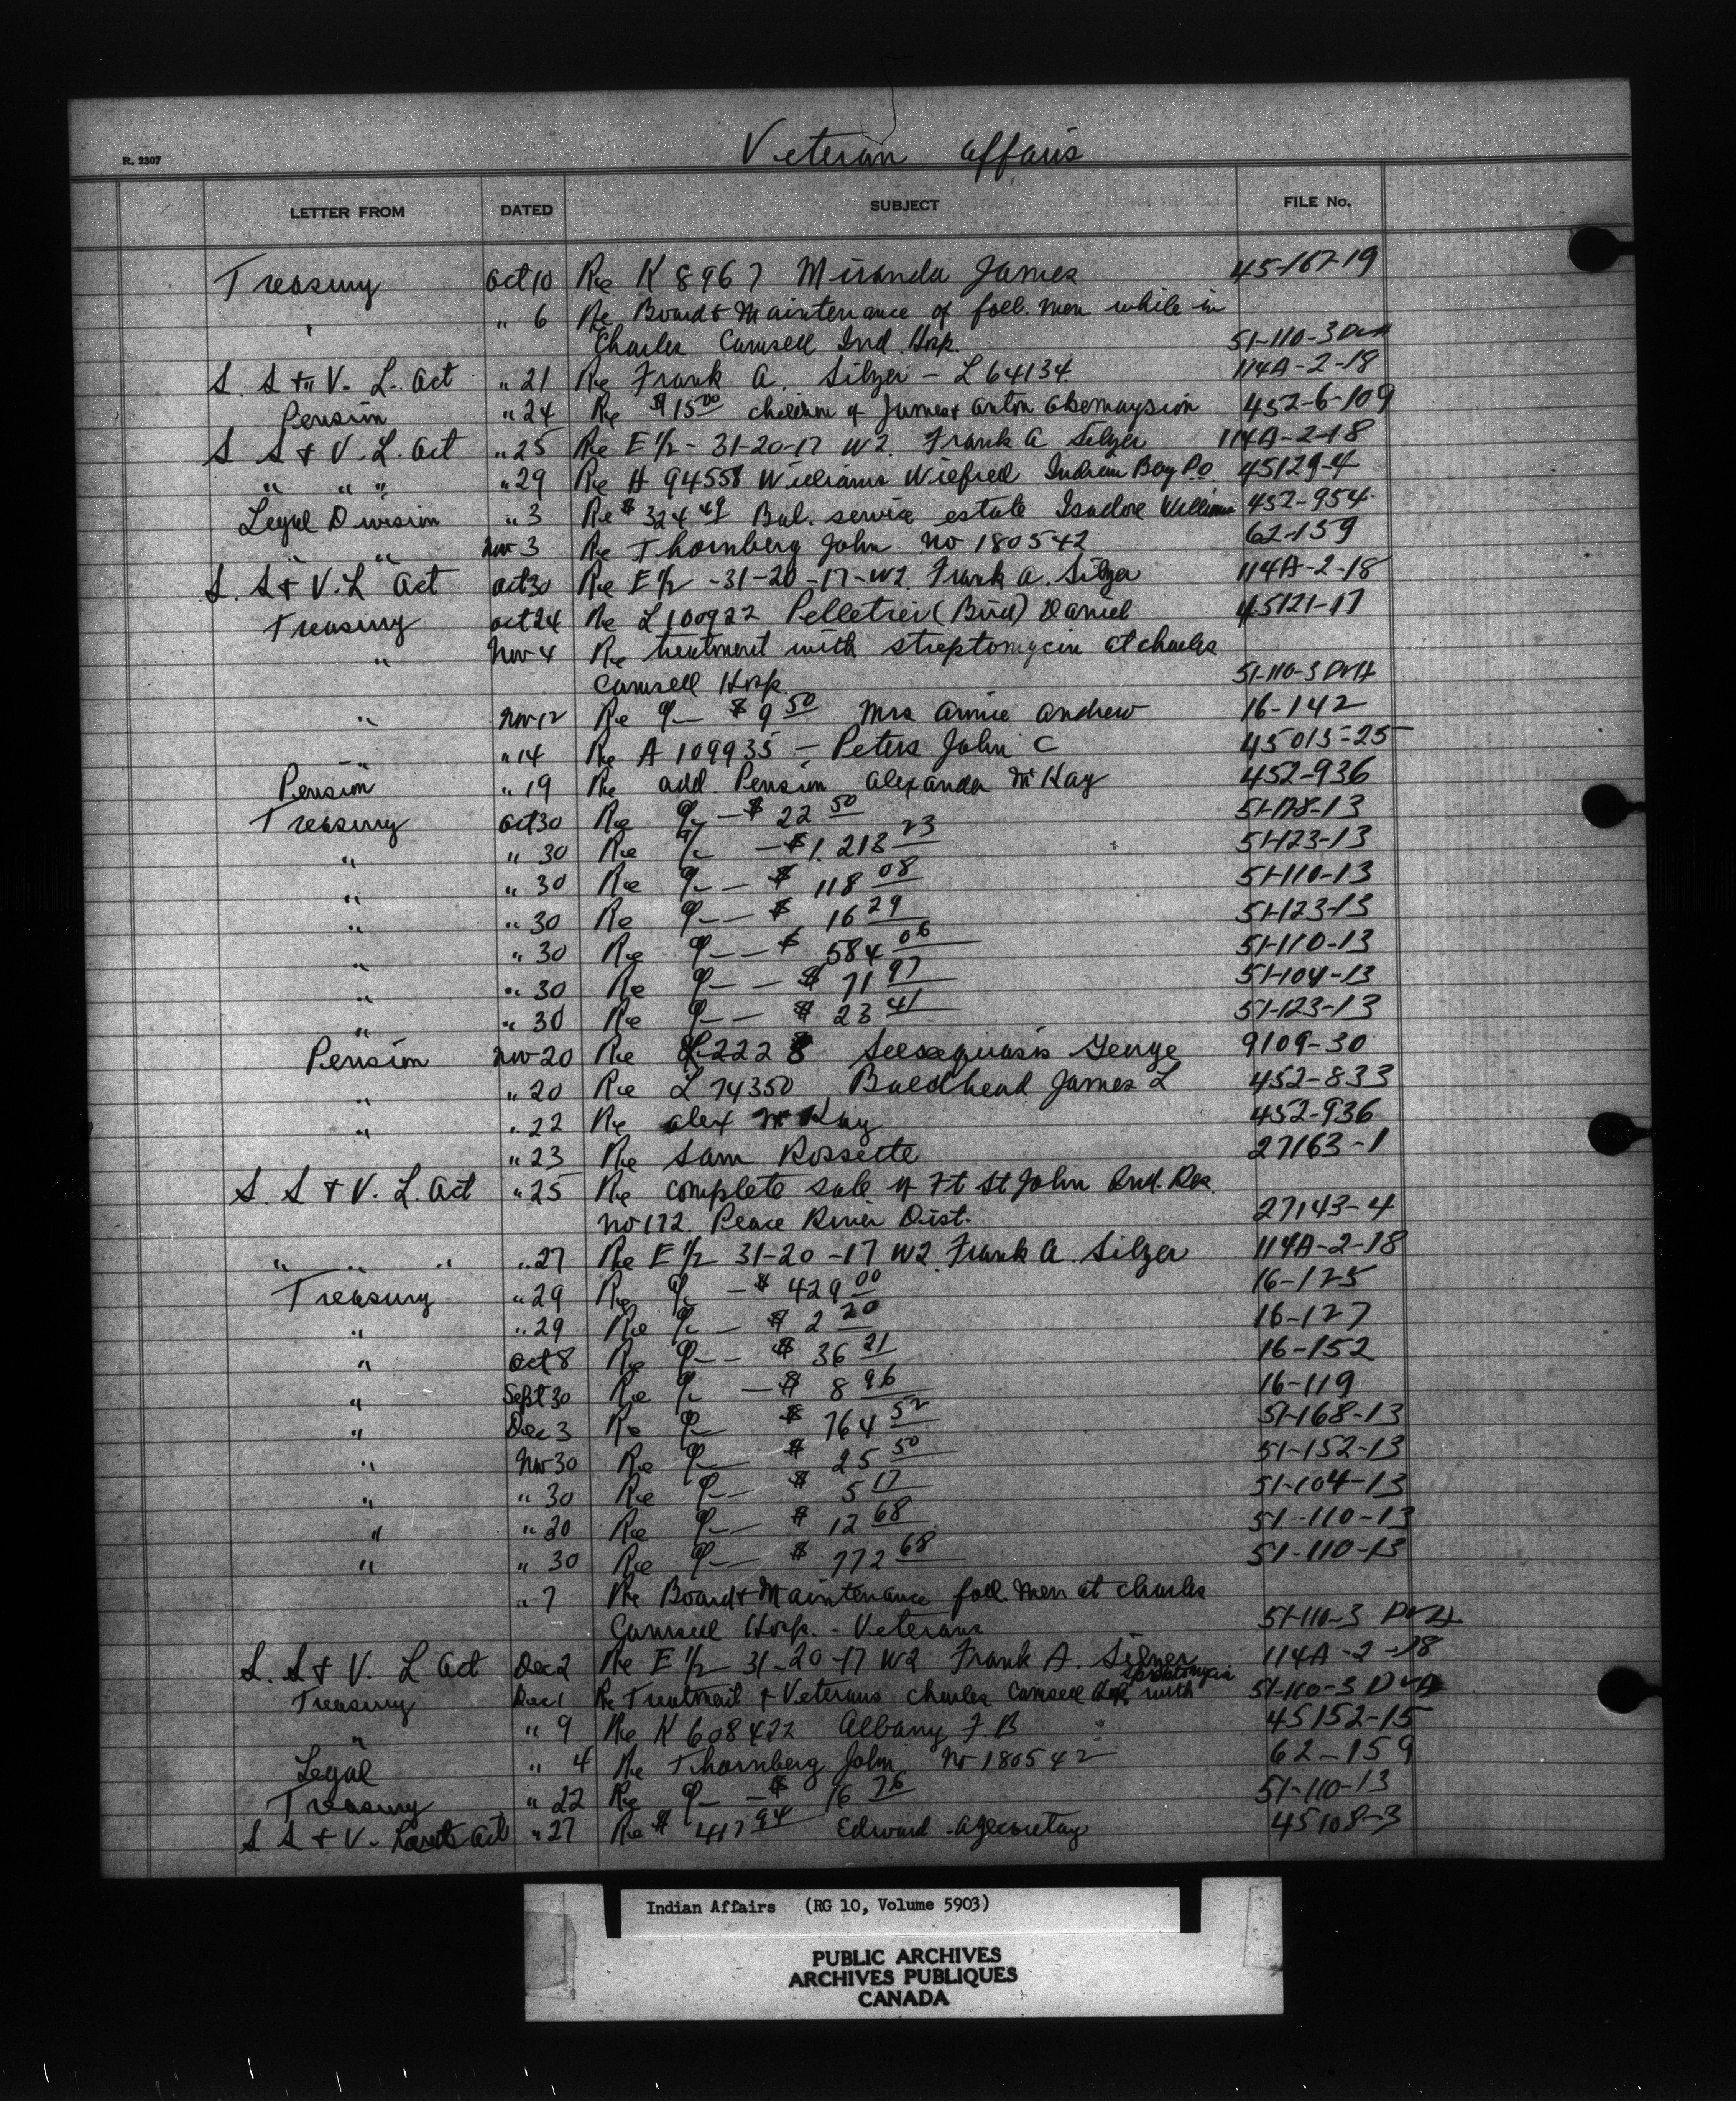 Veteran Affairs
R. 2307
LETTER FROM DATED SUBJECT FILE No.
Treasury Oct 10 Re K 8967 Miranda James 45-167-19
" 6 Re Board & Maintenance of foll. men while in
Charles Camsell Ind. Hosp. 51-110-3 DVA
S. S & V. L. Act " 21 Re Frank A. Silzer - L 64134 114A-2-18
Pension " 24 Re $15.00 children of James & Anton 452-6-109
S S & V. L. Act " 25 Re E 1/2 - 31-20-17 W2. Frank A Silzer 114A-2-18
" " " " 29 Re H 94558 Williams Wilfred Indian Bay P.O. 45129-4
Legal Division " 3 Re $324.49 Bal. service estate Isadore Williams 452-954
" " Nov 3 Re Thornberg John No 180542 62-159
S. S & V. L Act Oct 30 Re E 1/2 - 31-20-17-W2 Frank A. Silzer 114A-2-18
Treasury Oct 24 Re L 100922 Pelletier (Bird) Daniel 45121-17
" Nov 4 Re treatment with streptomycin at Charles
Camsell Hosp. 51-110-3 DVA
" Nov 12 Re % $9.50 Mrs Annie Andrew 16-142
" " 14 Re A 109935 - Peters John C 45015-25
Pension " 19 Re add. Pension Alexander McKay 452-936
Treasury Oct 30 Re % - $22.50 51-178-13
" " 30 Re % - $1.213.23 51-123-13
" " 30 Re % - $118.08 51-110-13
" " 30 Re % - $16.29 51-123-13
" " 30 Re % - $584.06 51-110-13
" " 30 Re % - $71.97 51-104-13
" " 30 Re % - $23.41 51-123-13
Pension Nov 20 Re 2228 Seesequasis George 9109-30
" " 20 Re L 74350 Baldhead James L 452-833
" " 22 Re Alex McKay 452-936
" 23 Re Sam Rossette 27163-1
S. S & V. L. Act " 25 Re complete sale of Ft St John Ind. Res.
No 172. Peace River Dist. 27143-4
" " " " 27 Re E 1/2 31-20-17 W2. Frank A. Silzer 114A-2-18
Treasury " 29 Re % - $429.00 16-125
" " 29 Re % - $2.20 16-127
" Oct 8 Re % - $36.21 16-152
" Sept 30 Re % - $8.96 16-119
" Dec 3 Re % $764.52 51-168-13
" Nov 30 Re % $25.50 51-152-13
" " 30 Re % $5.17 51-104-13
" " 20 Re % $12.68 51-110-13
" " 30 Re % $772.68 51-110-13
" 7 Re Board & Maintenance foll. men at Charles
Camsell Hosp. - Veterans 51-110-3 DVA
S. S & V. L Act Dec 2 Re E 1/2 31-20-17 W2 Frank A. Silzer 114A-2-18
Treasury Dec 1 Re Treatment of Veterans Charles Camsell Hosp. with streptomycin 51-110-3 DVA
" " 9 Re K 608422 Albany F. B 45152-15
Legal " 4 Re Thornberg John No 180542 62-159
Treasury " 22 Re % - $16.76 51-110-13
S S & V. Land Act " 27 Re $417.94 Edward Agecoutay 45108-3
Indian Affairs (RG 10, Volume 5903)
PUBLIC ARCHIVES
ARCHIVES PUBLIQUES
CANADA